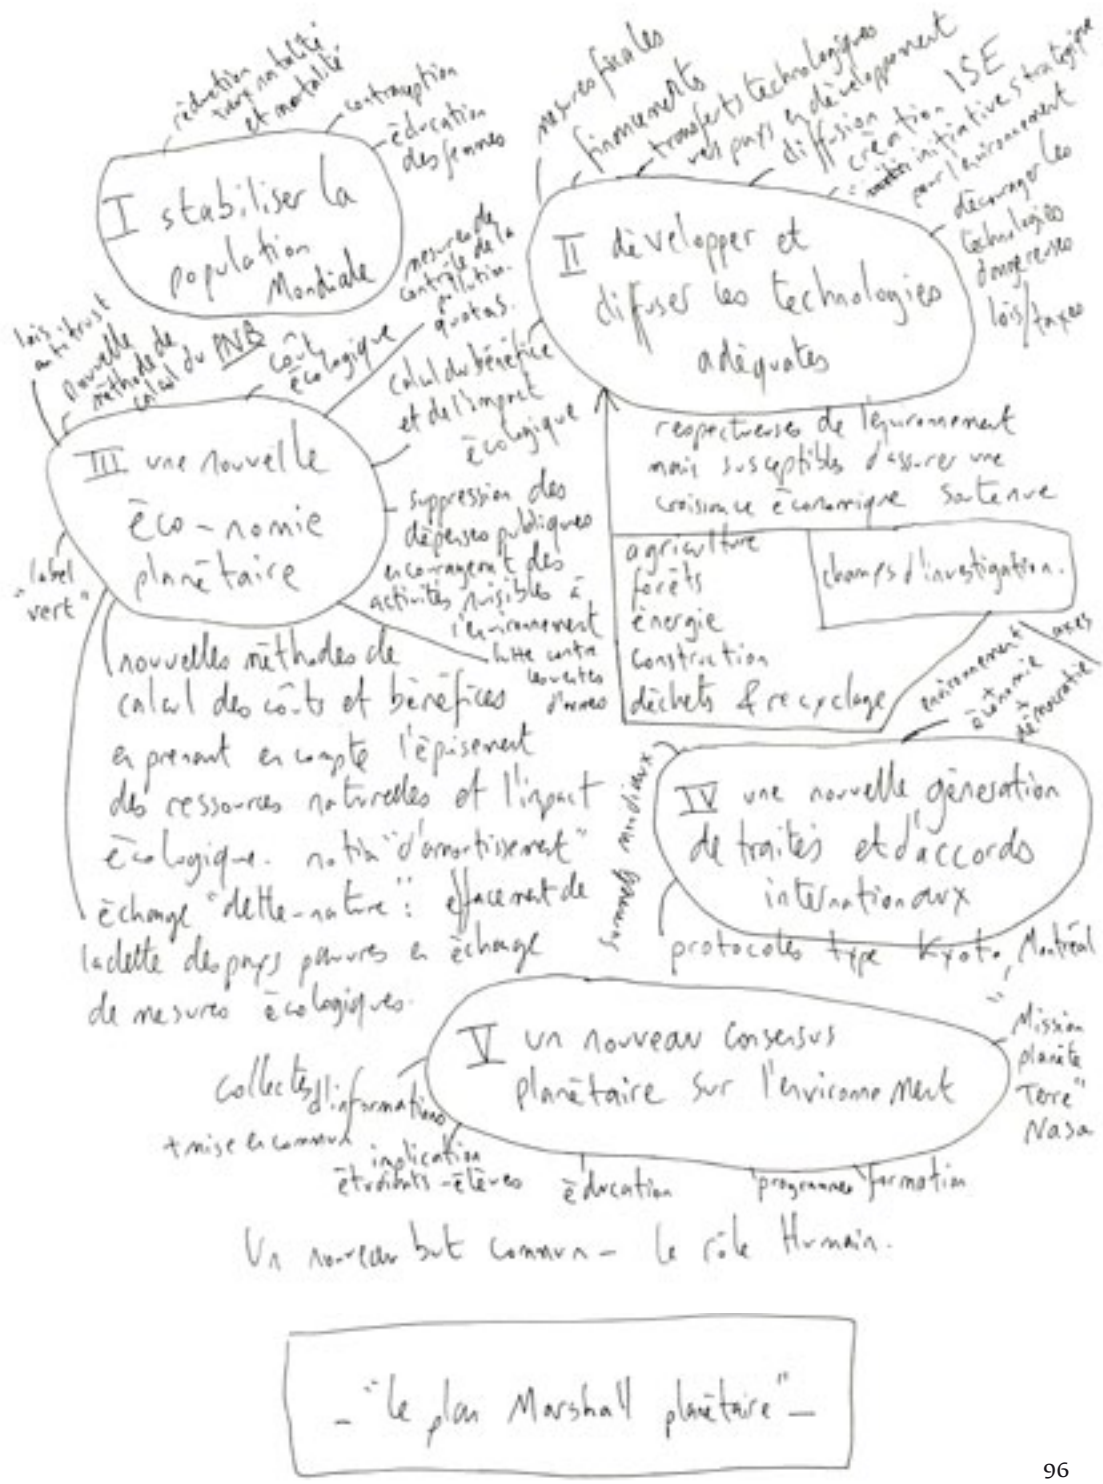 réduction
taux natalité
et mortalité
contraception
éducation
des femmes
I stabiliser la
population
Mondiale
mesures fiscales
financements
transferts technologiques
vers pays en développement
diffusion
création ISE
initiative stratégique
pour l'environnement
décourager les
technologies
dangereuses
lois/taxes
II développer et
diffuser les technologies
adéquates
respectueuses de l'environnement
mais susceptibles d'assurer une
croissance économique soutenue
agriculture
forêts
énergie
construction
déchets & recyclage
champs d'investigation.
lois antitrust
nouvelle
méthode de
calcul du PNB
coûts
écologique
mesures de
contrôle de la
pollution.
quotas.
calcul du bénéfice
et de l'impact
écologique
suppression des
dépenses publiques
encourageant des
activités nuisibles à
l'environnement
lutte contre
les ventes
d'armes
III une nouvelle
éco-nomie
planétaire
"label
vert"
nouvelles méthodes de
calcul des coûts et bénéfices
en prenant en compte l'épisement
des ressources naturelles et l'impact
écologique. notion "d'amortissement"
échange "dette-nature": effacement de
la dette des pays pauvres en échange
de mesures écologiques.
axes
environnement
économie
+
démocratie
IV une nouvelle génération
de traités et d'accords
internationaux
sommets mondiaux
protocoles type Kyoto, Montréal
V un nouveau consensus
planétaire sur l'environnement
"Mission
planète
Terre"
Nasa
collectes d'informations
+ mise en commun
implication
étudiants-élèves
éducation
programmes formation
Un nouveau but commun - le rôle Humain.
- "le plan Marshall planétaire" -
96